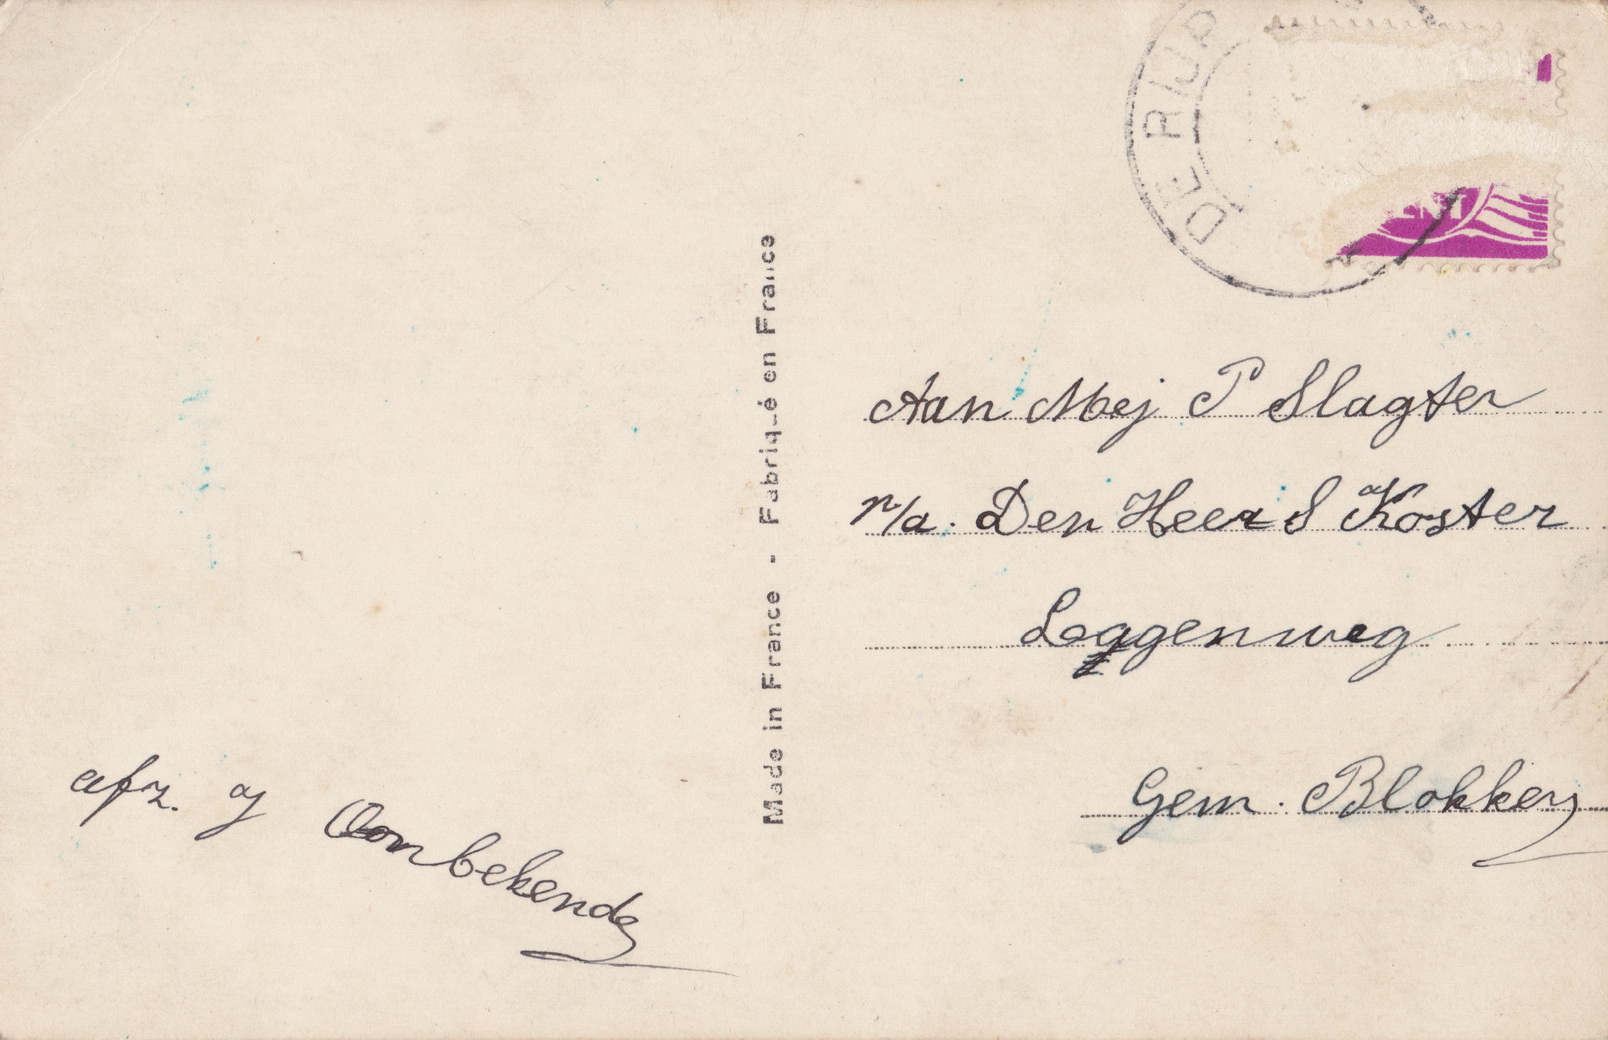 DE RIJP
CENT
Aan Mej P Slagter
p/a. Den Heer S Koster
Loggenweg
Gem. Blokker
Made in France - Fabriqué en France
afz. J Oombekende